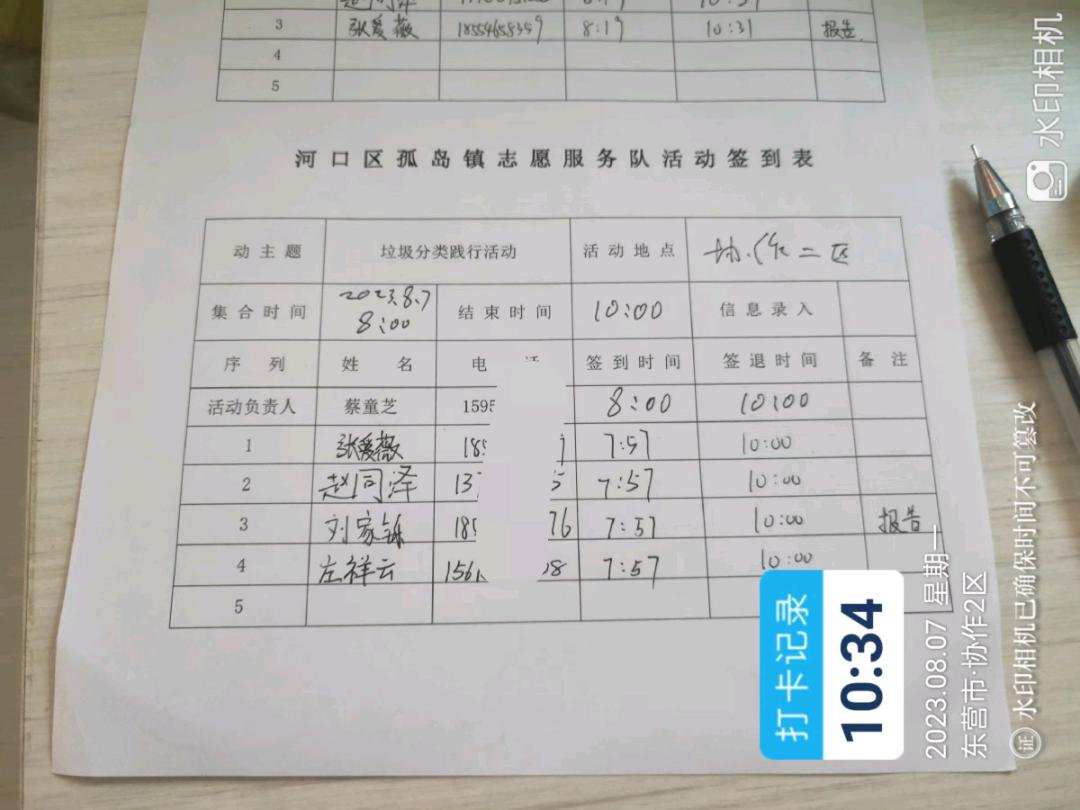 3 张爱薇 18554658359 8:19 10:31 报告
4
5
河口区孤岛镇志愿服务队活动签到表
动主题 垃圾分类践行活动 活动地点 协作二区
集合时间 2023.8.7 8:00 结束时间 10:00 信息录入
序列 姓名 电 签到时间 签退时间 备注
活动负责人 蔡童芝 1595 8:00 10:00
1 张爱薇 185 7:57 10:00
2 赵同泽 137 5 7:57 10:00
3 刘家铄 185 76 7:57 10:00 报告
4 左祥云 156 28 7:57 10:00
5
打卡记录
10:34
2023.08.07 星期一
东营市·协作2区
证 水印相机已确保时间不可篡改
水印相机